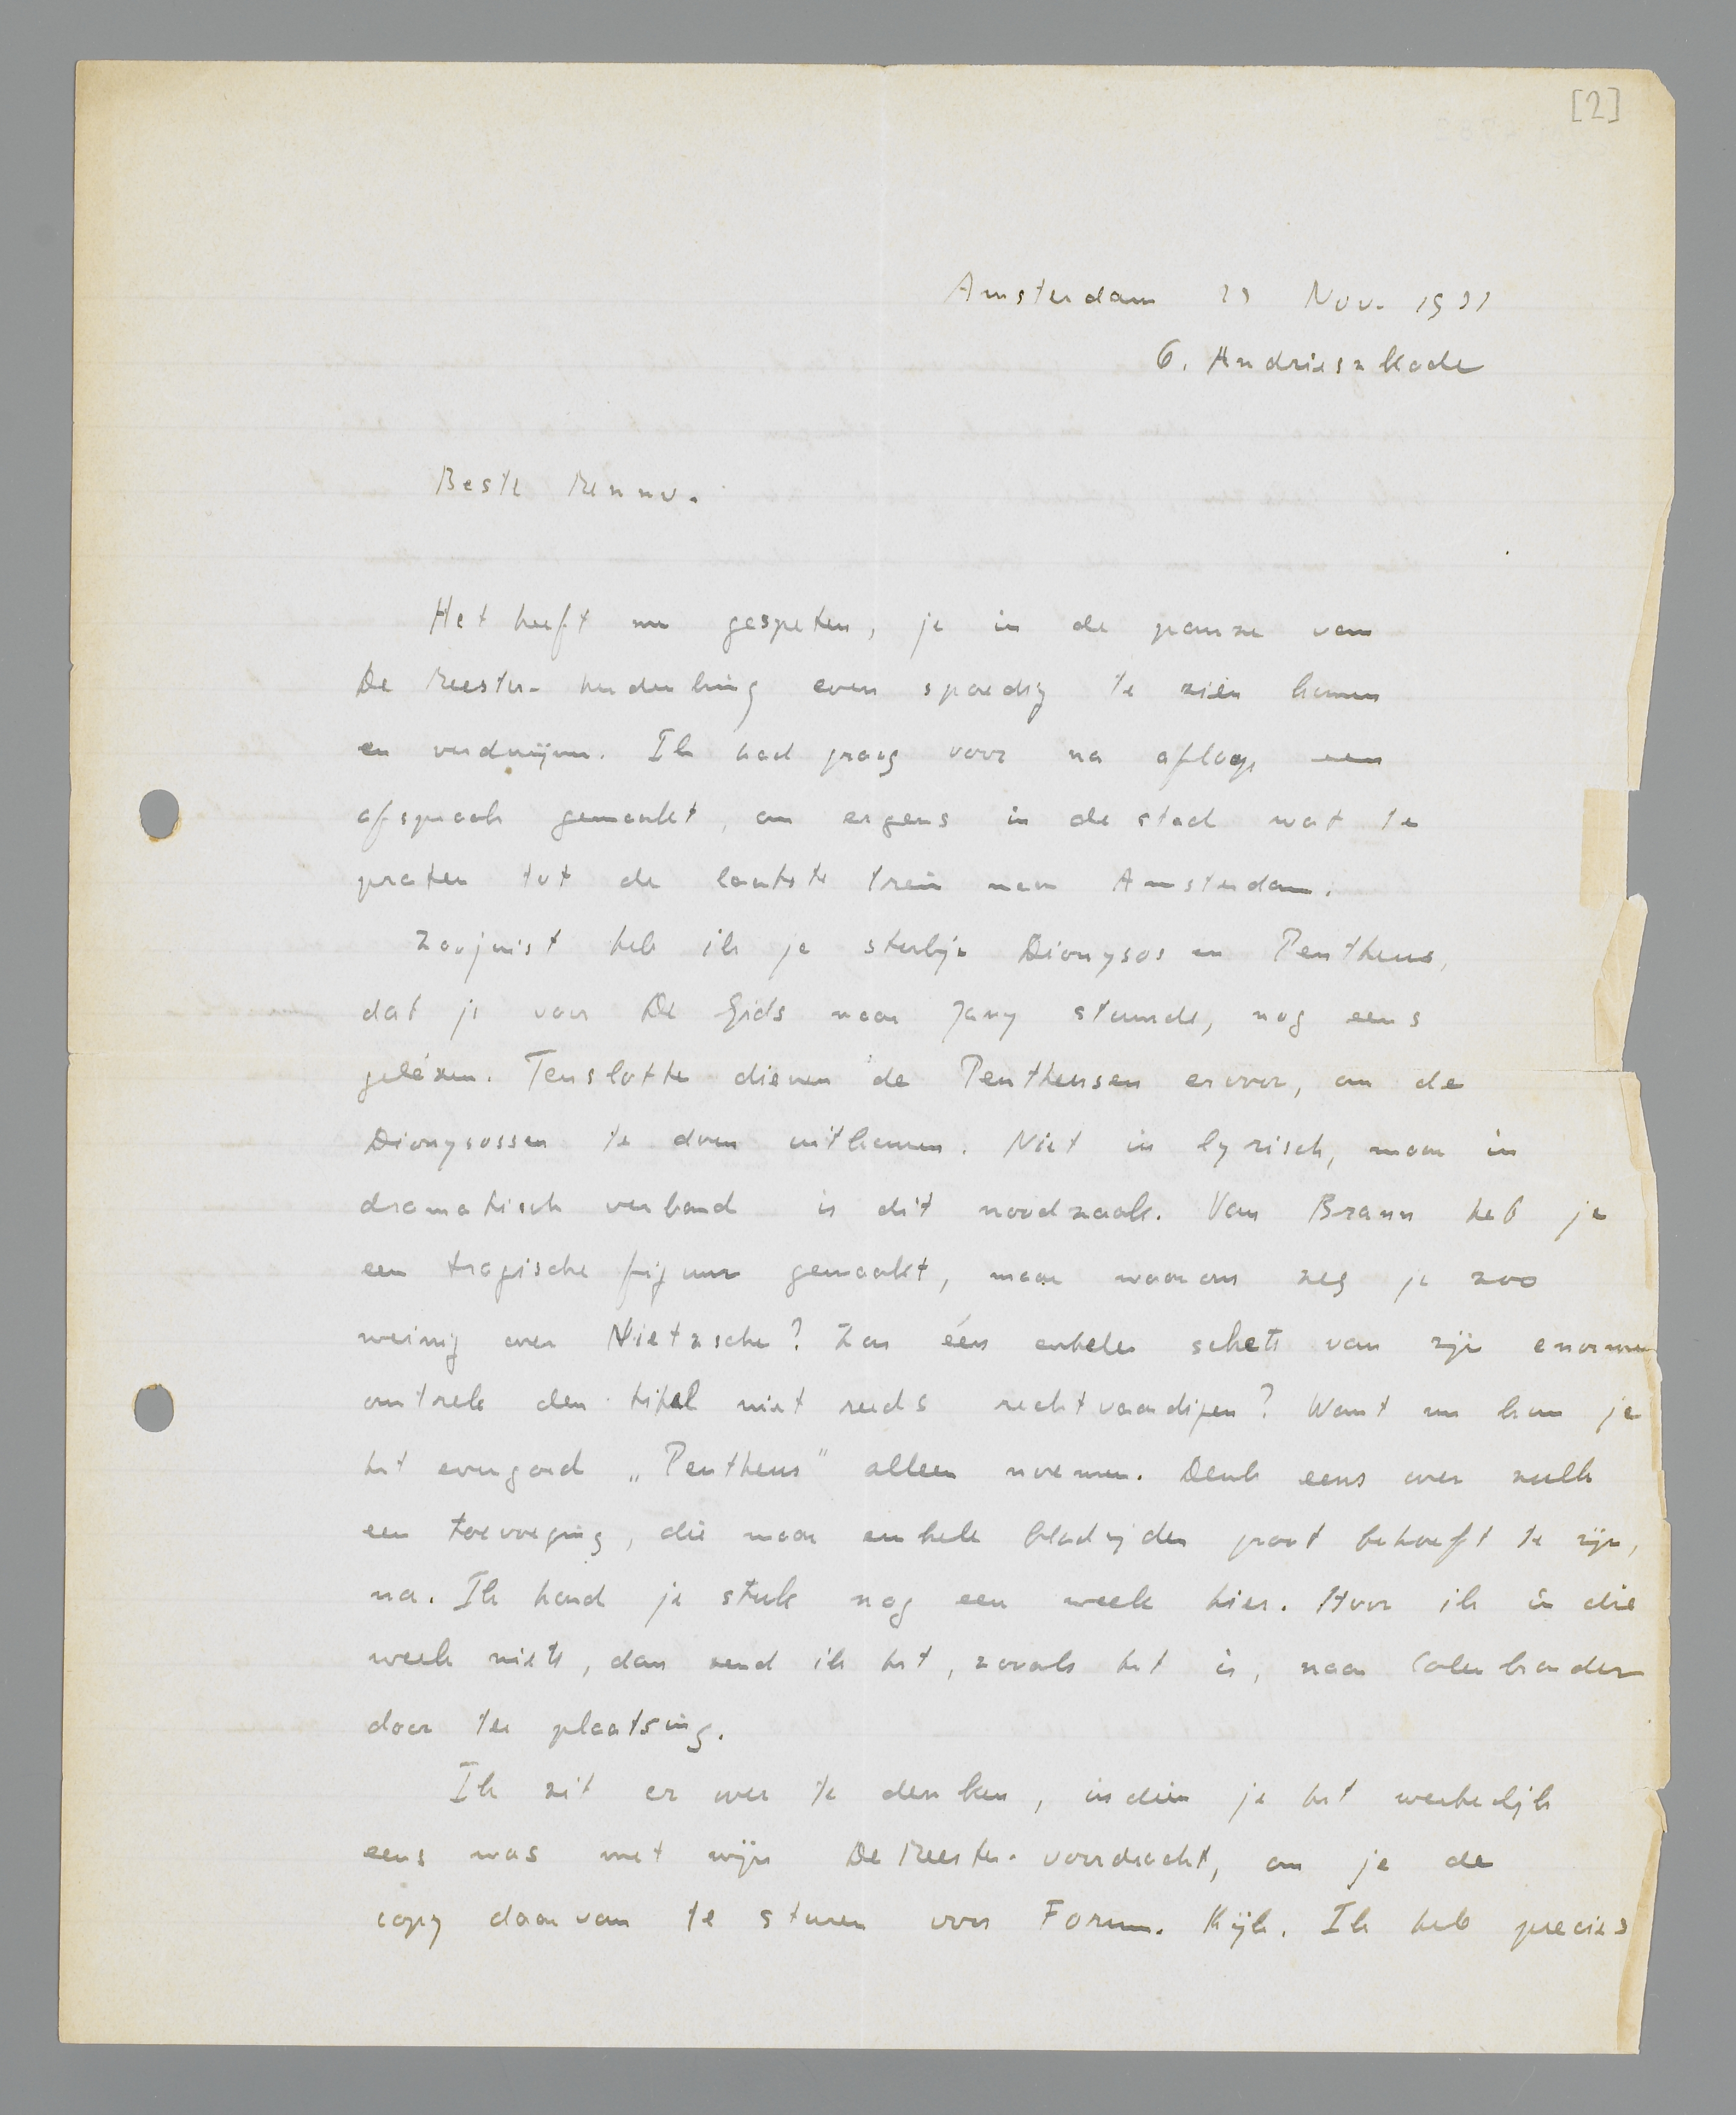 [2]
Amsterdam 23 Nov. 1931
6. Andrieszkade
Beste Menno.
Het heeft me gespeten, je in de pauze van
De Meester-herdenking even spoedig te zien komen
en verdwijnen. Ik had graag voor na afloop een
afspraak gemaakt, om ergens in de stad wat te
praten tot de laatste trein naar Amsterdam.
Zoojuist heb ik je stukje Dionysos en Pentheus,
dat je voor De Gids naar Jany stuurde, nog eens
gelézen. Tenslotte dienen de Pentheusen ervoor, om de
Dionysossen te doen uitkomen. Niet in lyrisch, maar in
dramatisch verband is dit noodzaak. Van Braun heb je
een tragische figuur gemaakt, maar waarom zeg je zoo
weinig over Nietzsche? Zou één enkele schets van zijn enormen
omtrek den titel niet reeds rechtvaardigen? Want nu kun je
het evengoed „Pentheus" alleen noemen. Denk eens over zulk
een toevoeging, die maar enkele bladzijden groot behoeft te zijn,
na. Ik houd je stuk nog een week hier. Hoor ik in die
week niets, dan zend ik het, zooals het is, naar Colenbrander
door ter plaatsing.
Ik zit er over te denken, indien je het werkelijk
eens was met mijn De Meester-voordracht, om je de
copy daarvan te sturen voor Forum. Kijk. Ik heb precies